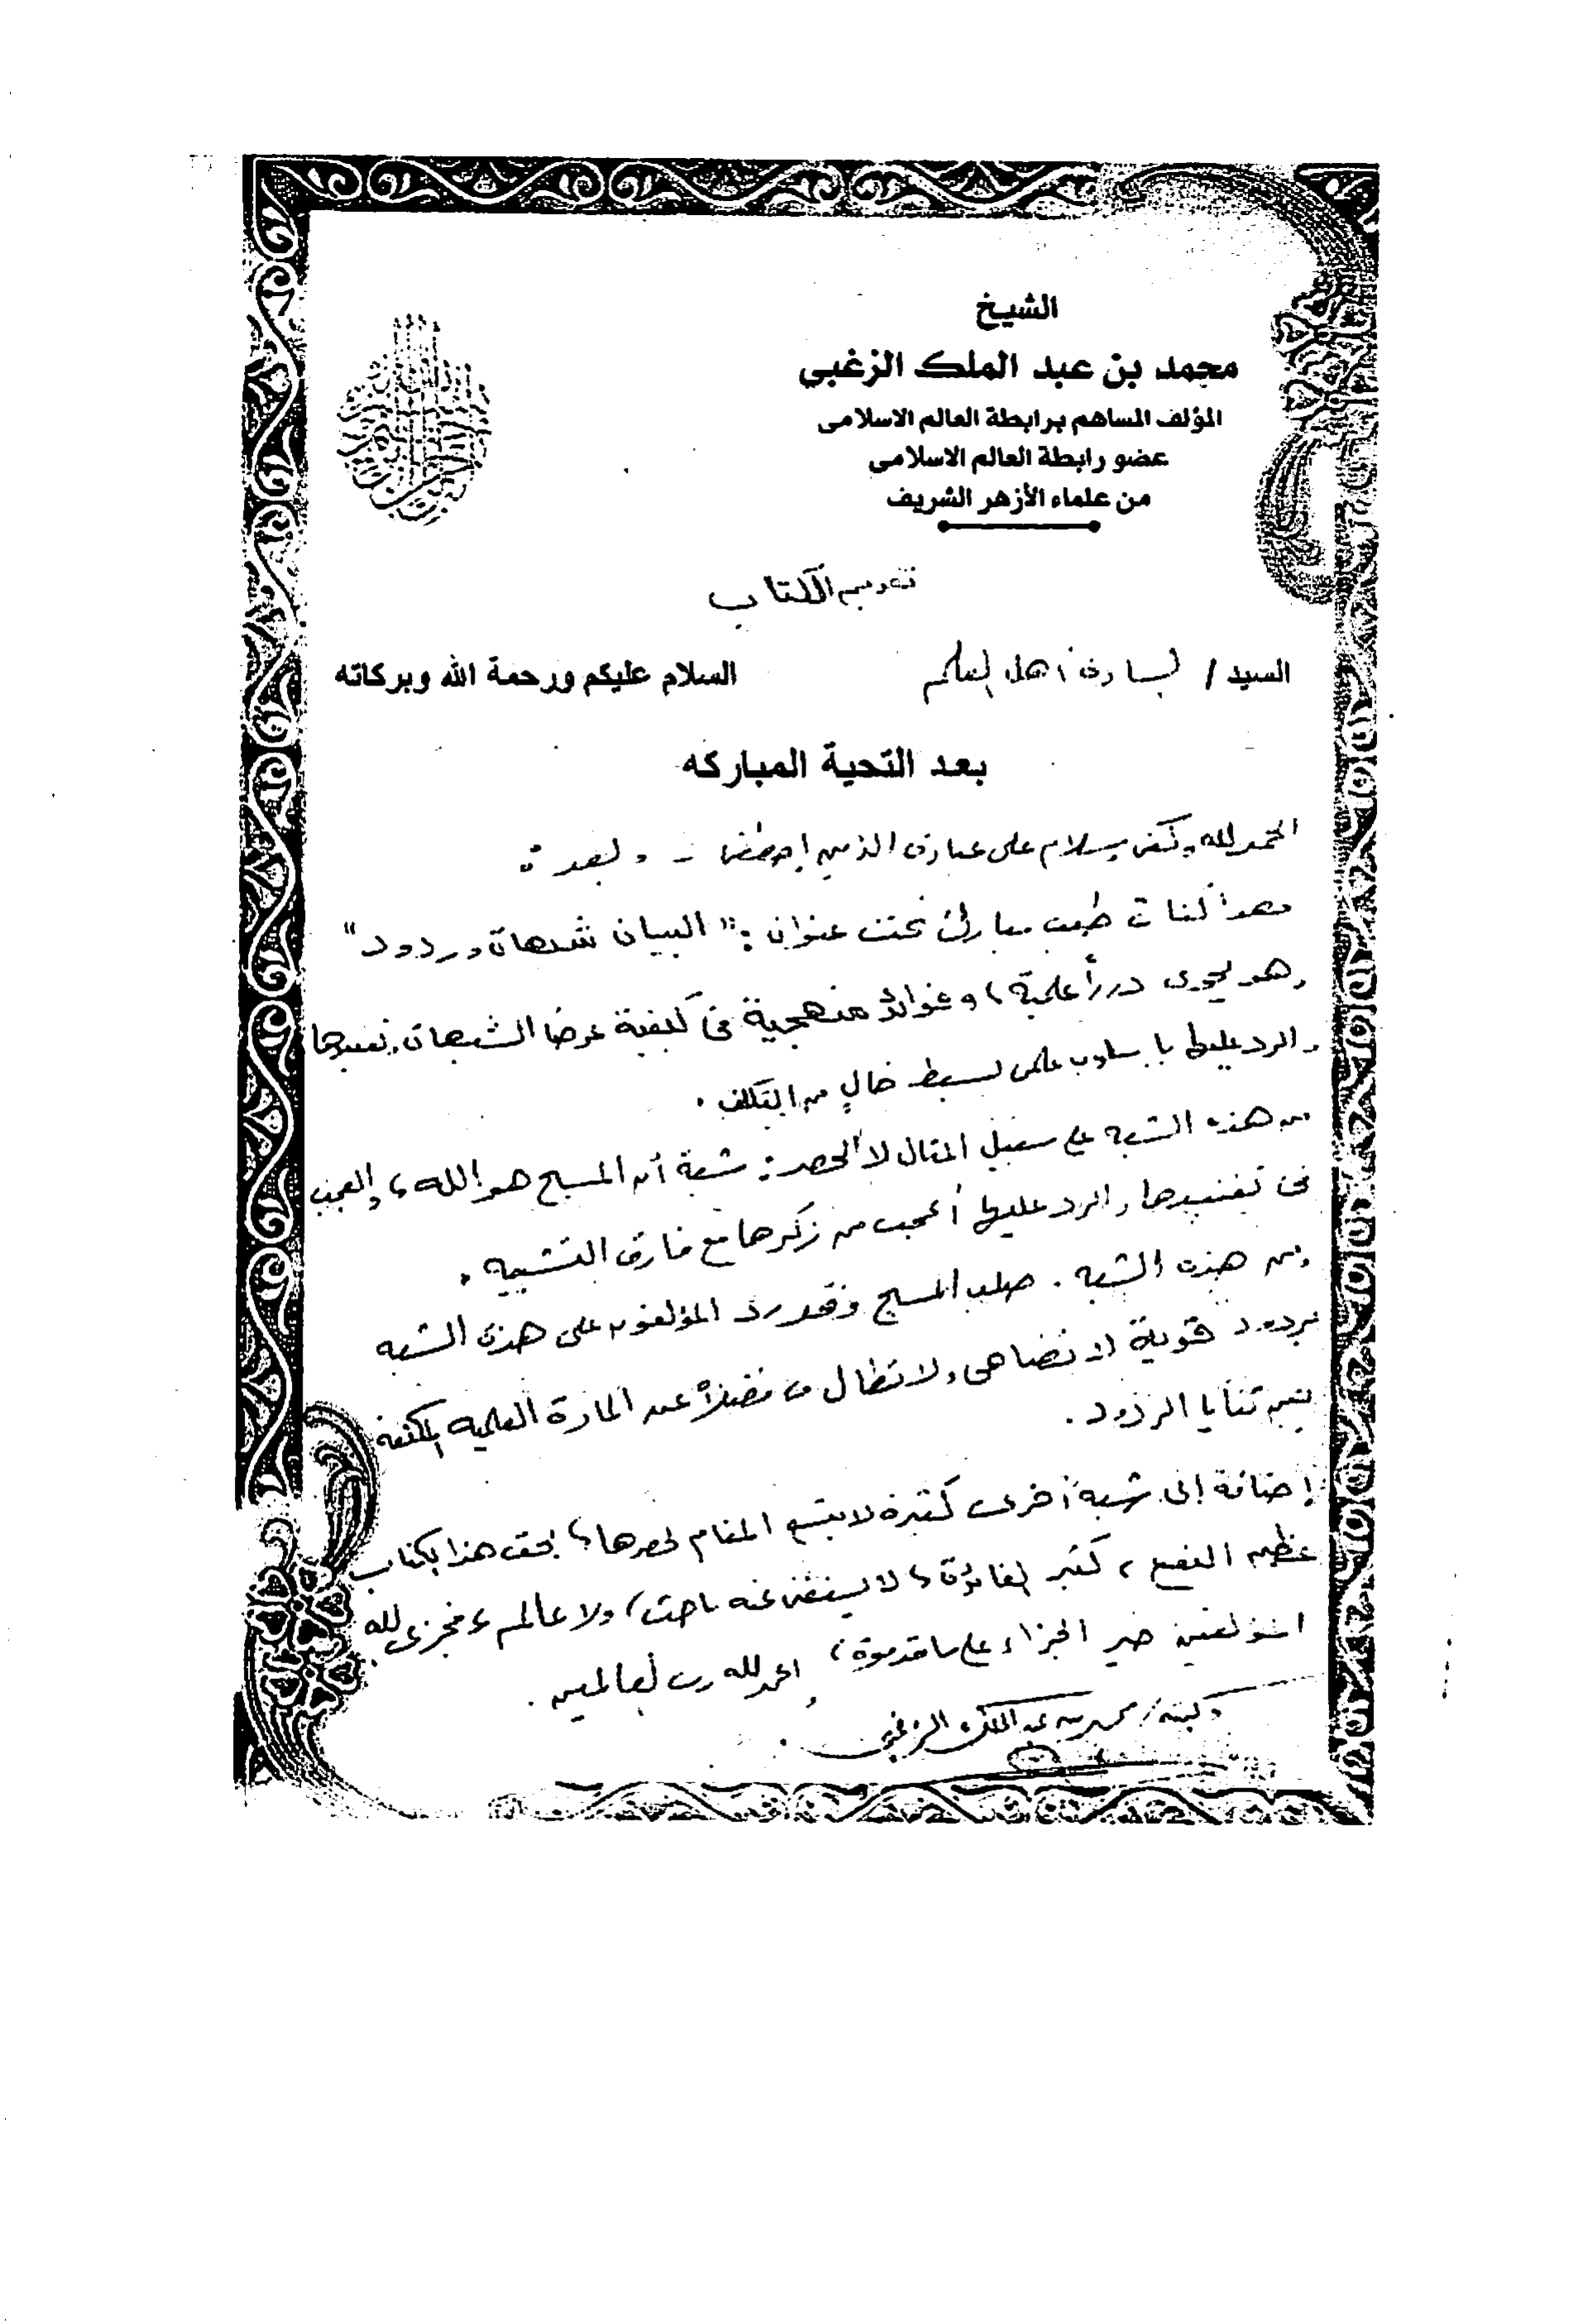 الشيخ
محمد بن عبد الملك الزغبي
المؤلف المساهم برابطة العالم الاسلامى
عضو رابطة العالم الاسلامى
من علماء الأزهر الشريف
تقديم الكتاب
السيد / السادة أهل العلم
السلام عليكم ورحمة الله وبركاته
بعد التحية المباركه
الحمد لله وكفى وسلام على عباده الذين اصطفى - وبعد :
فهذا كتاب طيب مبارك تحت عنوان : " البيان شبهات وردود "
وهو يحوى درراً علمية ، وفوائد منهجية فى كيفية عرض الشبهات وتفنيدها
والرد عليها بأسلوب علمى بسيط خالٍ من التكلف .
من هذه الشبه على سبيل المثال لا الحصر : شبهة أن المسيح هو الله ، والعجب
فى تفنيدها والرد عليها أعجب من ذكرها مع فارق التشبيه .
ومن هذه الشبه . صلب المسيح وقد رد المؤلفون على هذه الشبه
بردود قوية لا تضاهى ولا تطال ، فضلاً عن المادة العلمية المكثفة
بين ثنايا الردود .
إضافة إلى شبه أخرى كثيرة لا يتسع المقام لحصرها ، بحق هذا الكتاب
عظيم النفع ، كثير الفائدة ، لا يستغنى عنه باحث ، ولا عالم ، فجزى الله
المؤلفين خير الجزاء على ما قدموه ، والحمد لله رب العالمين .
وكتبه / محمد بن عبد الملك الزغبي .